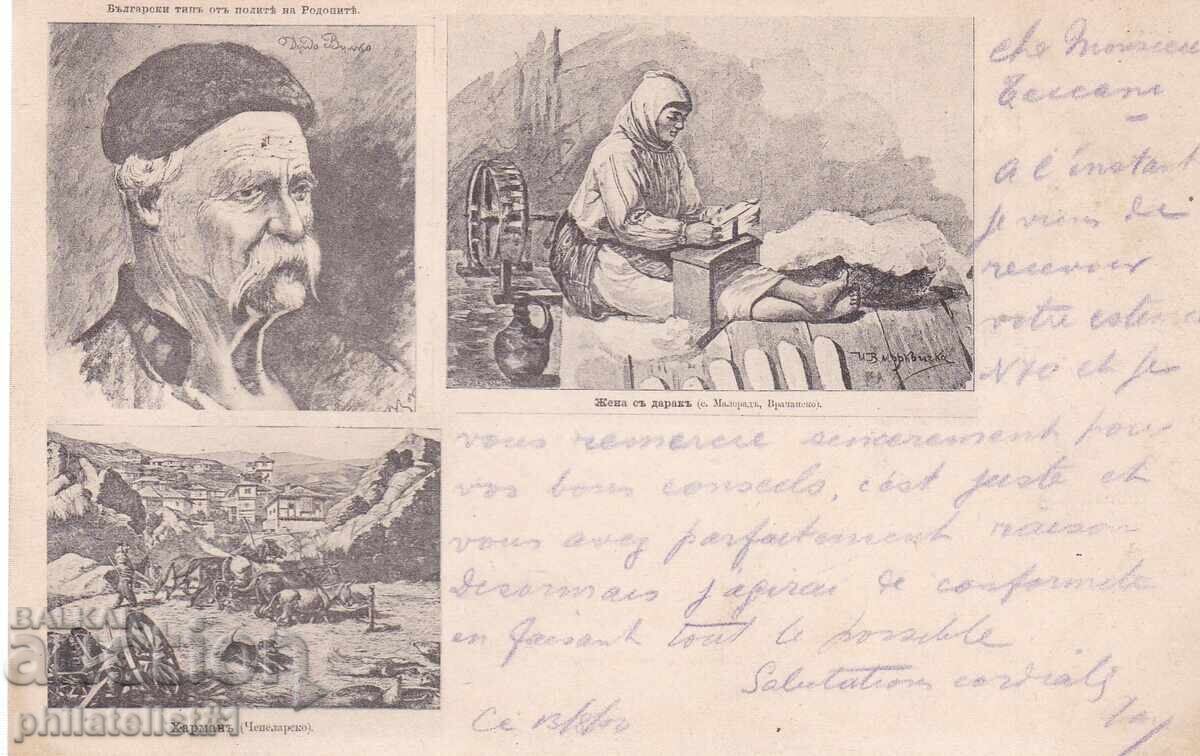 Български типъ отъ политѣ на Родопитѣ.
Дядо Вълко
И В Мърквичка
Жена съ даракъ (с. Малорадъ, Врачанско).
Харманъ (Чепеларско).
che Monsieur
A l'instant
je viens de
recevoir
votre estimé
N 70 et je
vous remercie sincerement pour
vos bons conseils, c'est juste et
vous avez parfaitement raison
desormais j'agirai de conformité
en faisant tout le possible
Salutations cordiales
Ce
BALKAN
auction
philatelist#1